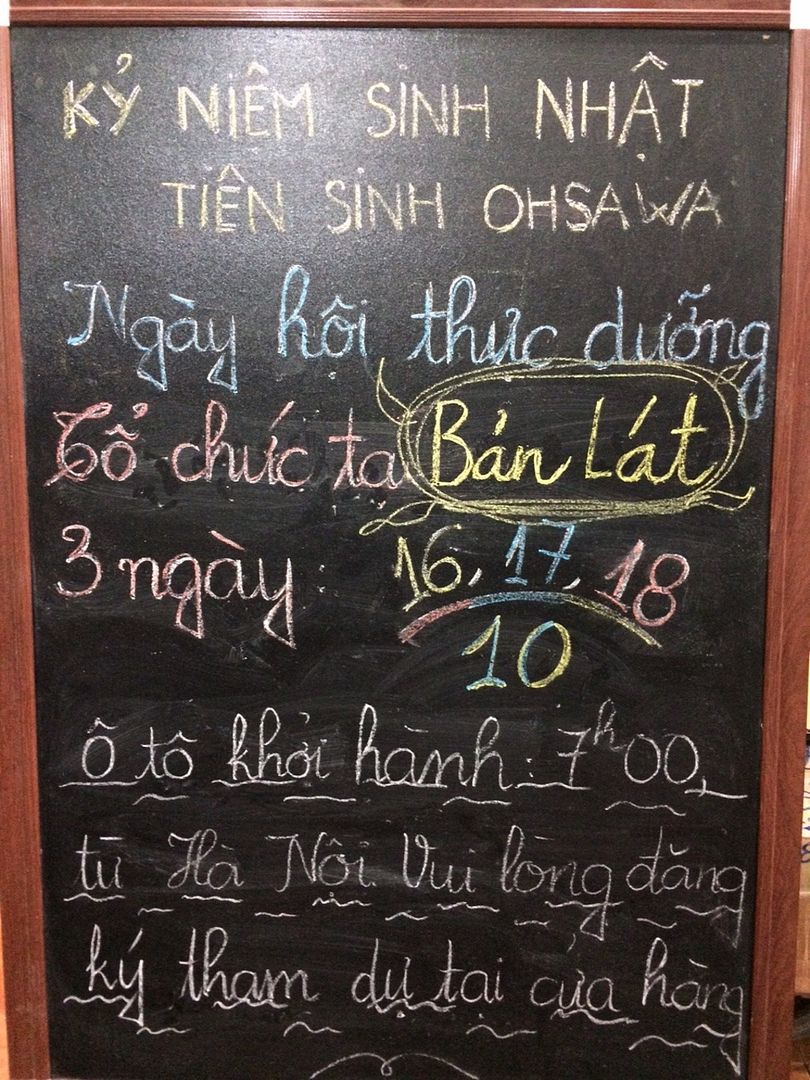 KỶ NIỆM SINH NHẬT
TIÊN SINH OHSAWA
Ngày hội thực dưỡng
Tổ chức tại Bản Lát
3 ngày: 16, 17, 18
10
Ô tô khởi hành: 7h00
từ Hà Nội. Vui lòng đăng
ký tham dự tại cửa hàng